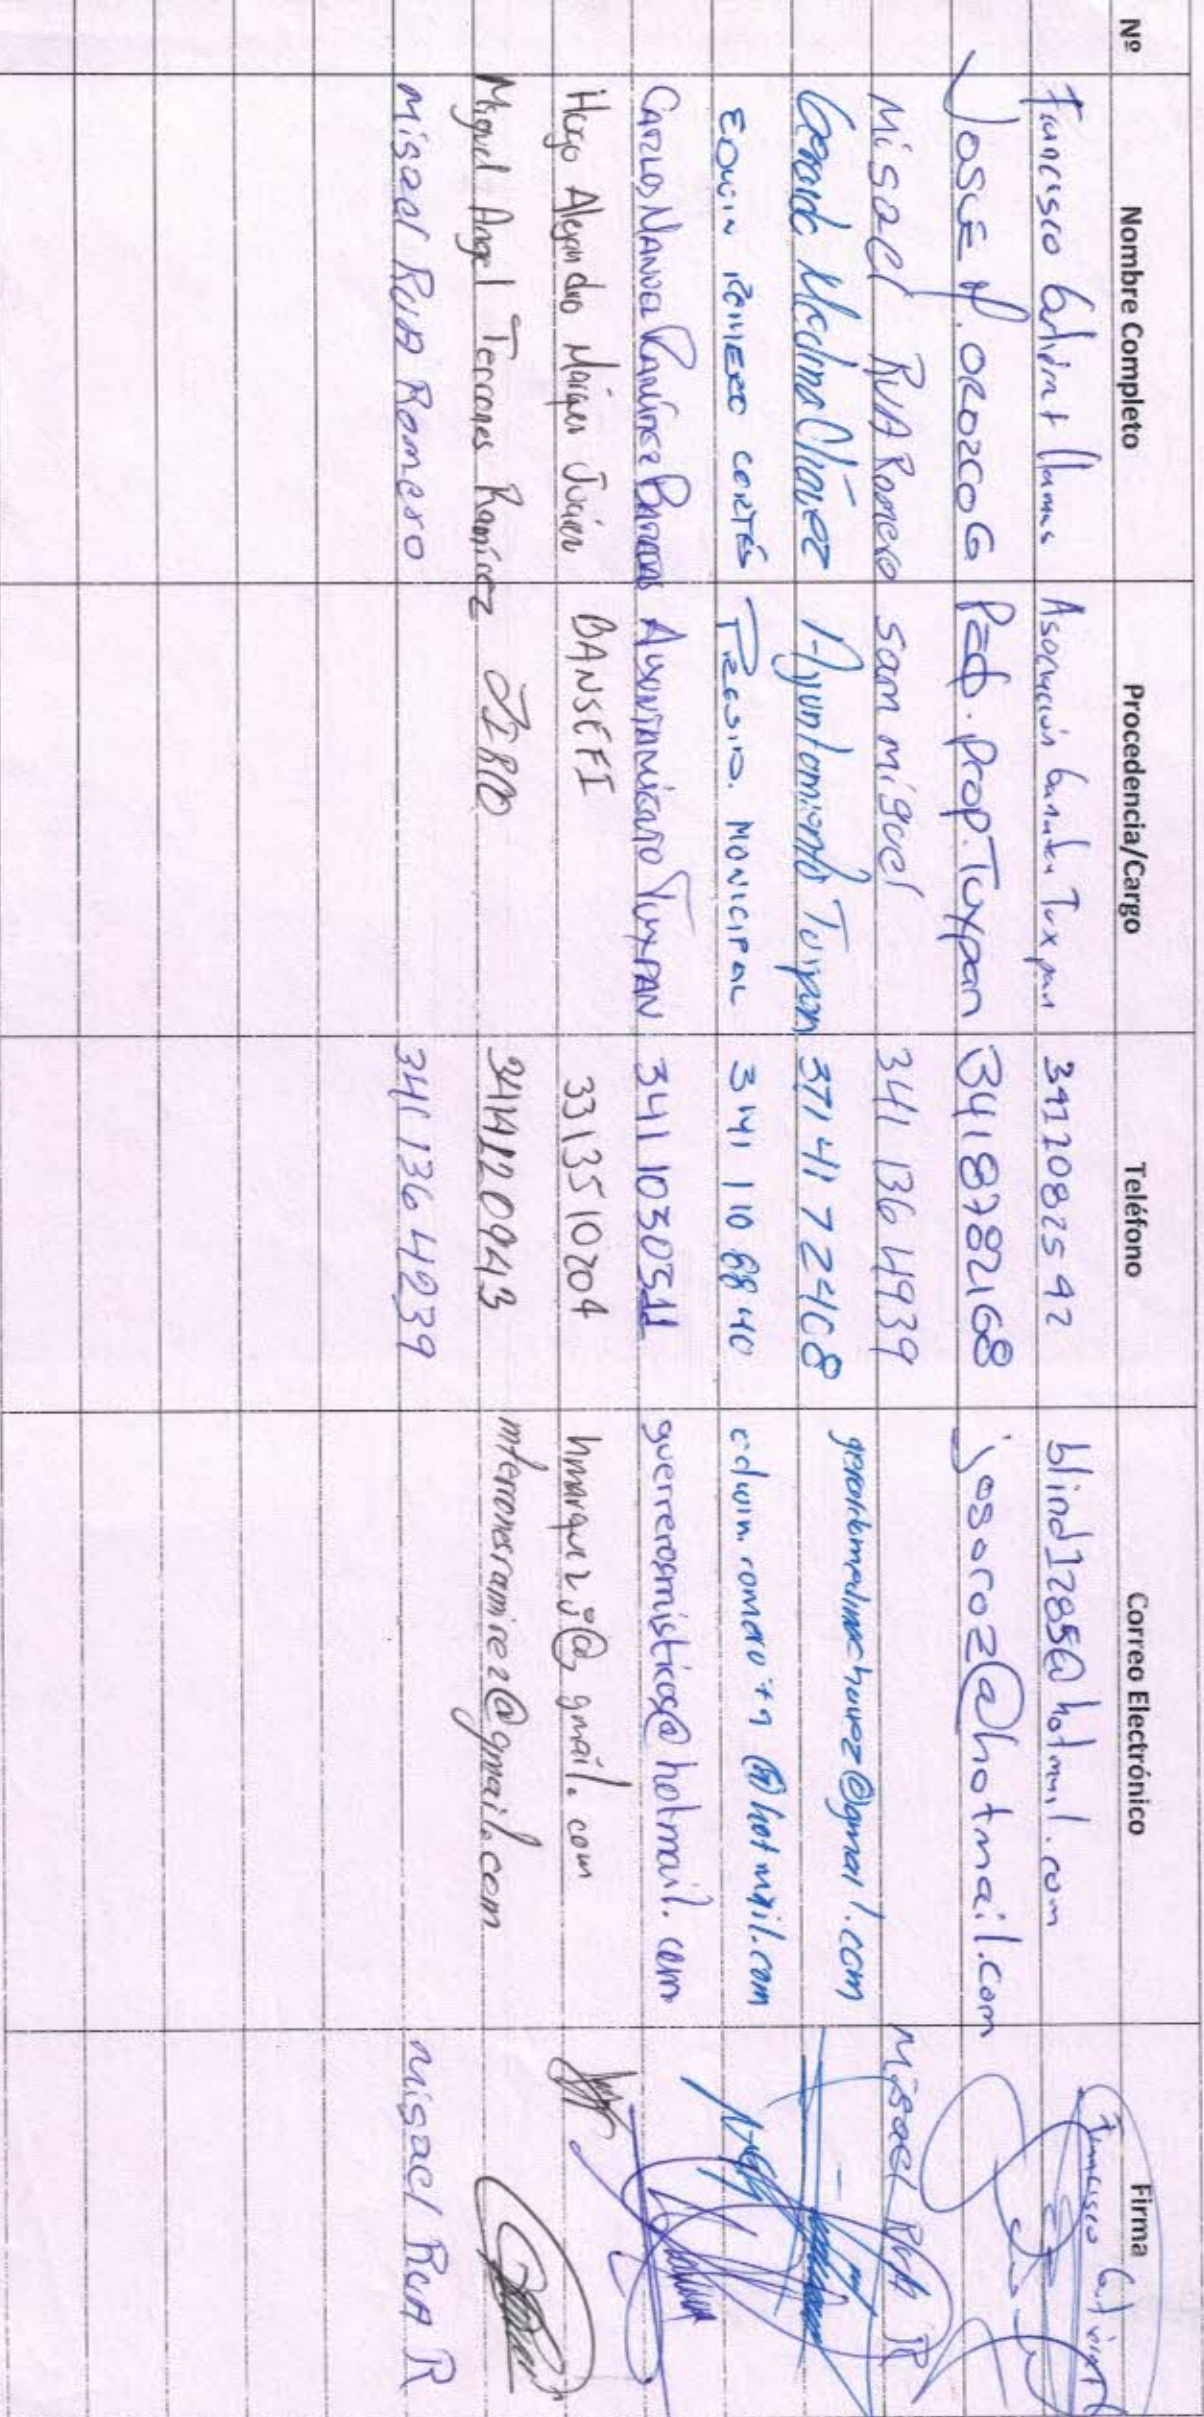 Nº Nombre Completo Procedencia/Cargo Teléfono Correo Electrónico Firma
Francisco Llamas Asociación Tuxpan blind1285@hotmail.com Francisco
OROZCO G Prop. Tuxpan 3418782168 josoroz@hotmail.com
Misael RUA Romero San miguel 341 136 4939 Misael RUA R
Gerardo Medina Chávez Ayuntamiento Tuxpan 371 41 7 2408
EDWIN ROMERO CORTÉS PRESID. MUNICIPAL 341 110 6840
CARLOS MANUEL RAMÍREZ AYUNTAMIENTO TUXPAN 341 1030511 guerrerosmisticos@hotmail.com
Hugo Alejandro BANSEFI 3313510204 hmarquezj@gmail.com
Miguel Angel Terrones Ramírez 3414120943 mterronesramirez@gmail.com
Misael RUA Romero 341 136 4239 Misael RUA R